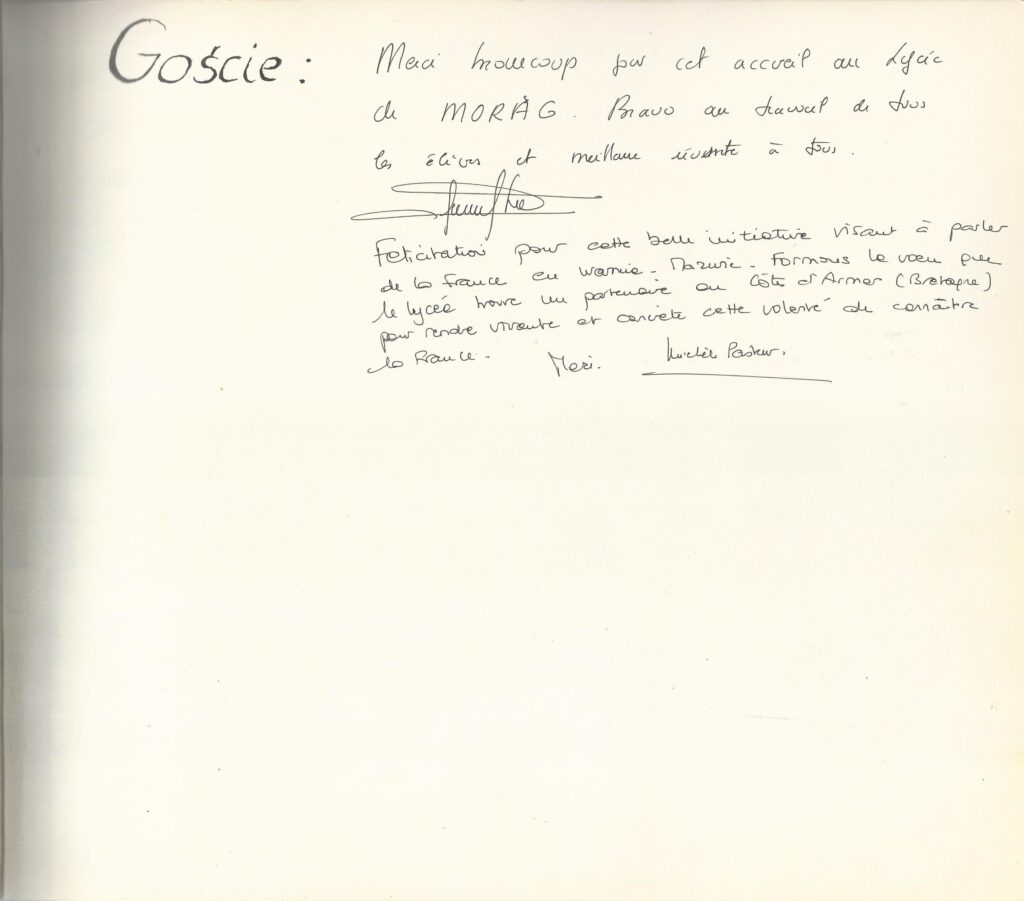 Goście :
Merci beaucoup pour cet accueil au Lycée
de MORĄG. Bravo au travail de tous
les élèves et meilleure réussite à tous.
Félicitation pour cette belle initiative visant à parler
de la France en Warmie - Mazurie. Formons le vœu que
le lycée trouve un partenaire en Côte d'Armor (Bretagne)
pour rendre vivante et concrète cette volonté de connaître
la France.
Merci. Michèle Pasteur.